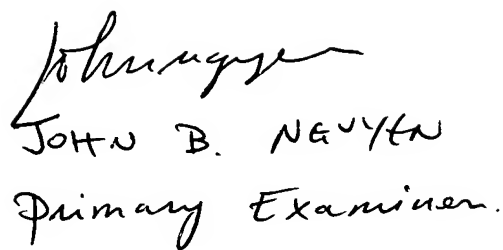 Johnnguyen
JOHN B. NGUYEN
Primary Examiner.